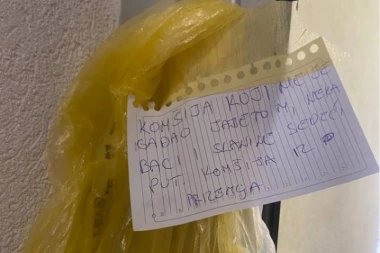 KOMŠIJA KOJI ME JE
GAĐAO JAJETOM, NEKA
BACI I SLANINE SLEDEĆI
PUT. KOMŠIJA IZ
PRIZEMLJA.